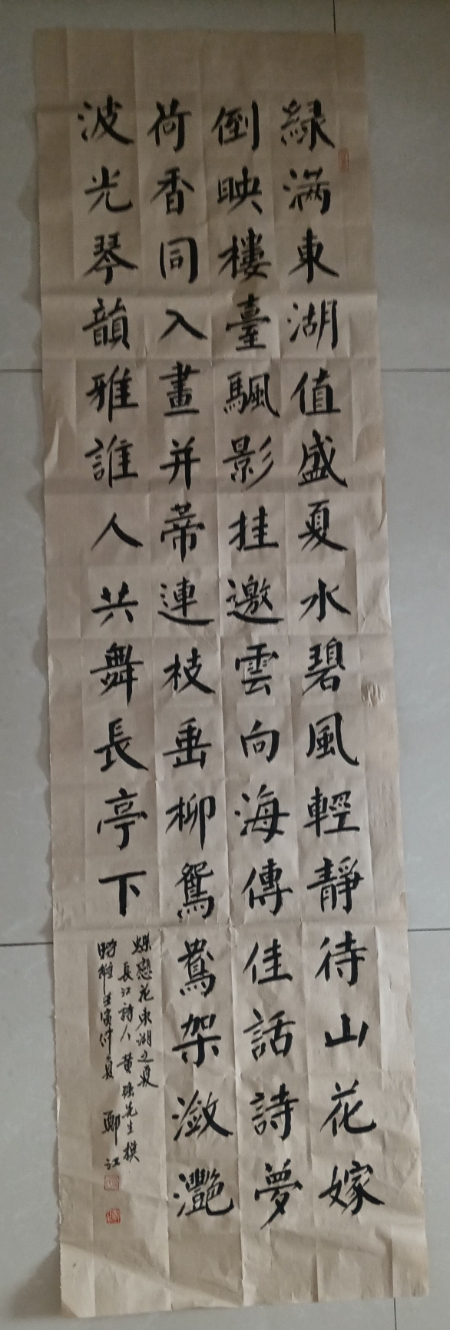 綠满東湖值盛夏水碧風輕靜待山花嫁
倒映樓臺颿影挂邀雲向海傳佳話詩夢
荷香同入畫并蒂連枝垂柳鴛鴦架潋灔
波光琴韻雅誰人共舞長亭下
蝶戀花東湖之夏
長江詩人黄强先生撰
時維壬寅仲夏 鄭江